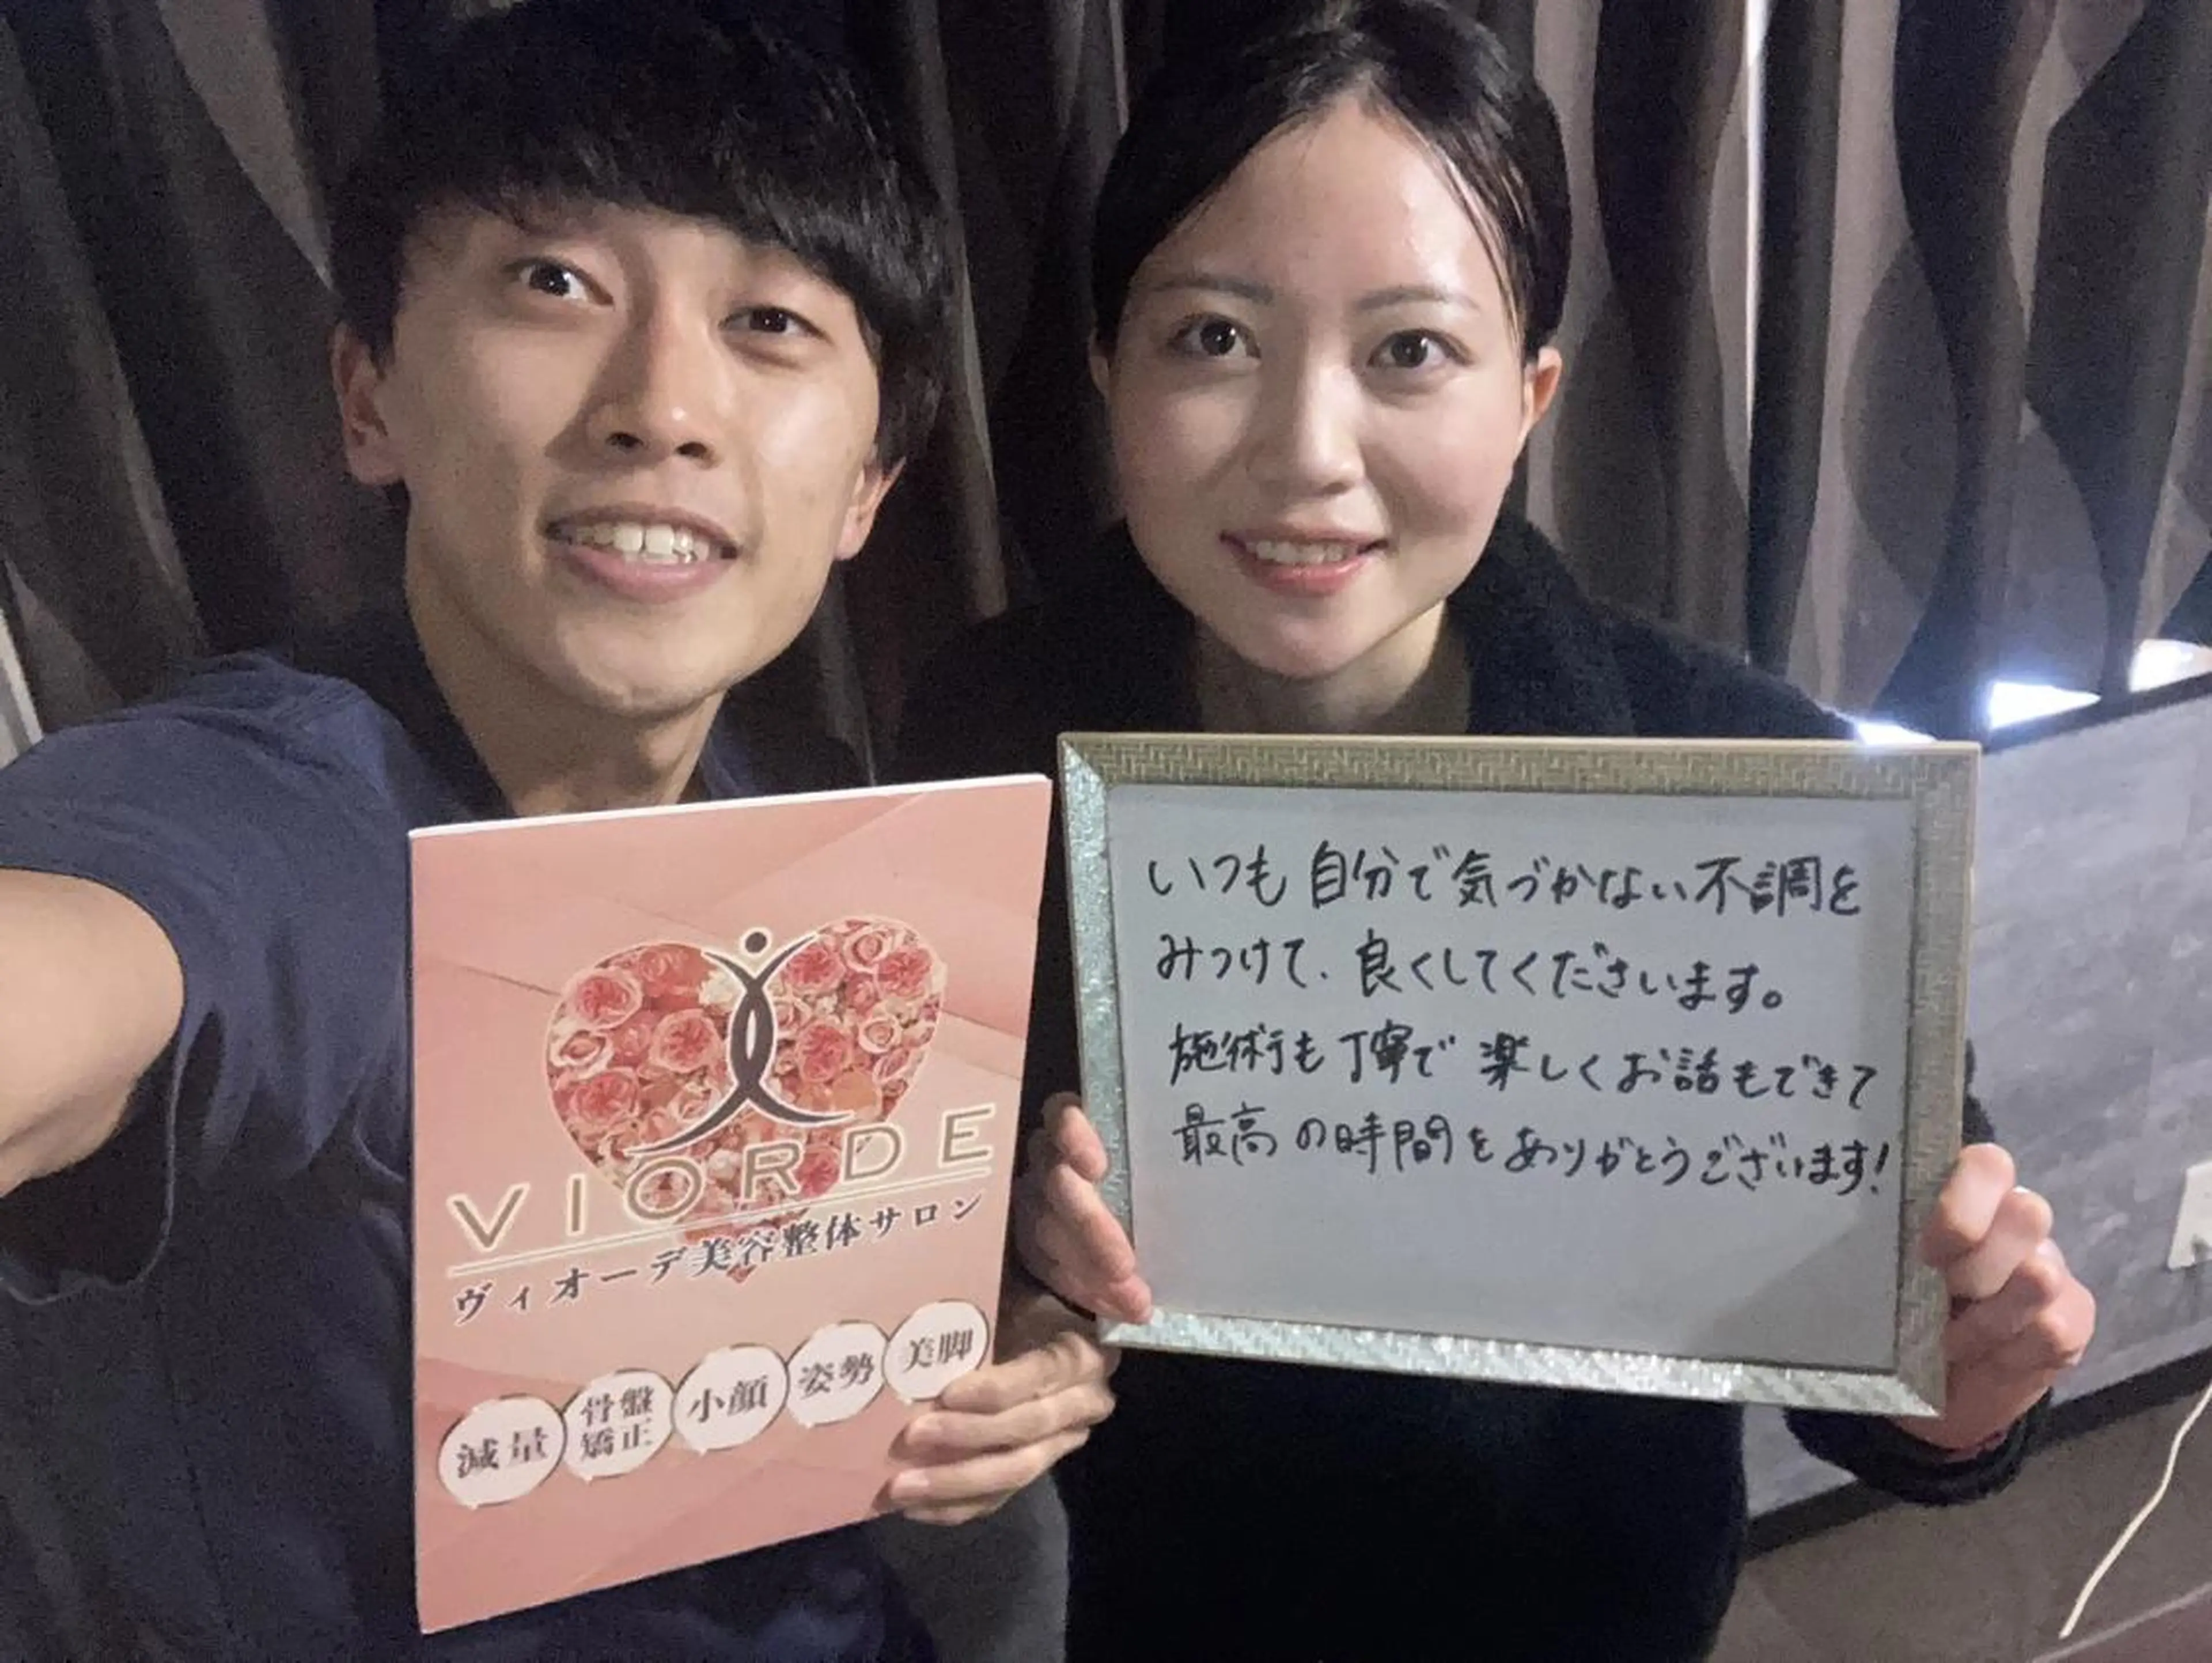 VIORDE
ヴィオーデ美容整体サロン
減量
骨盤
矯正
小顔
姿勢
美脚
いつも自分で気づかない不調を
みつけて、良くしてくださいます。
施術も丁寧で楽しくお話もできて
最高の時間をありがとうございます!